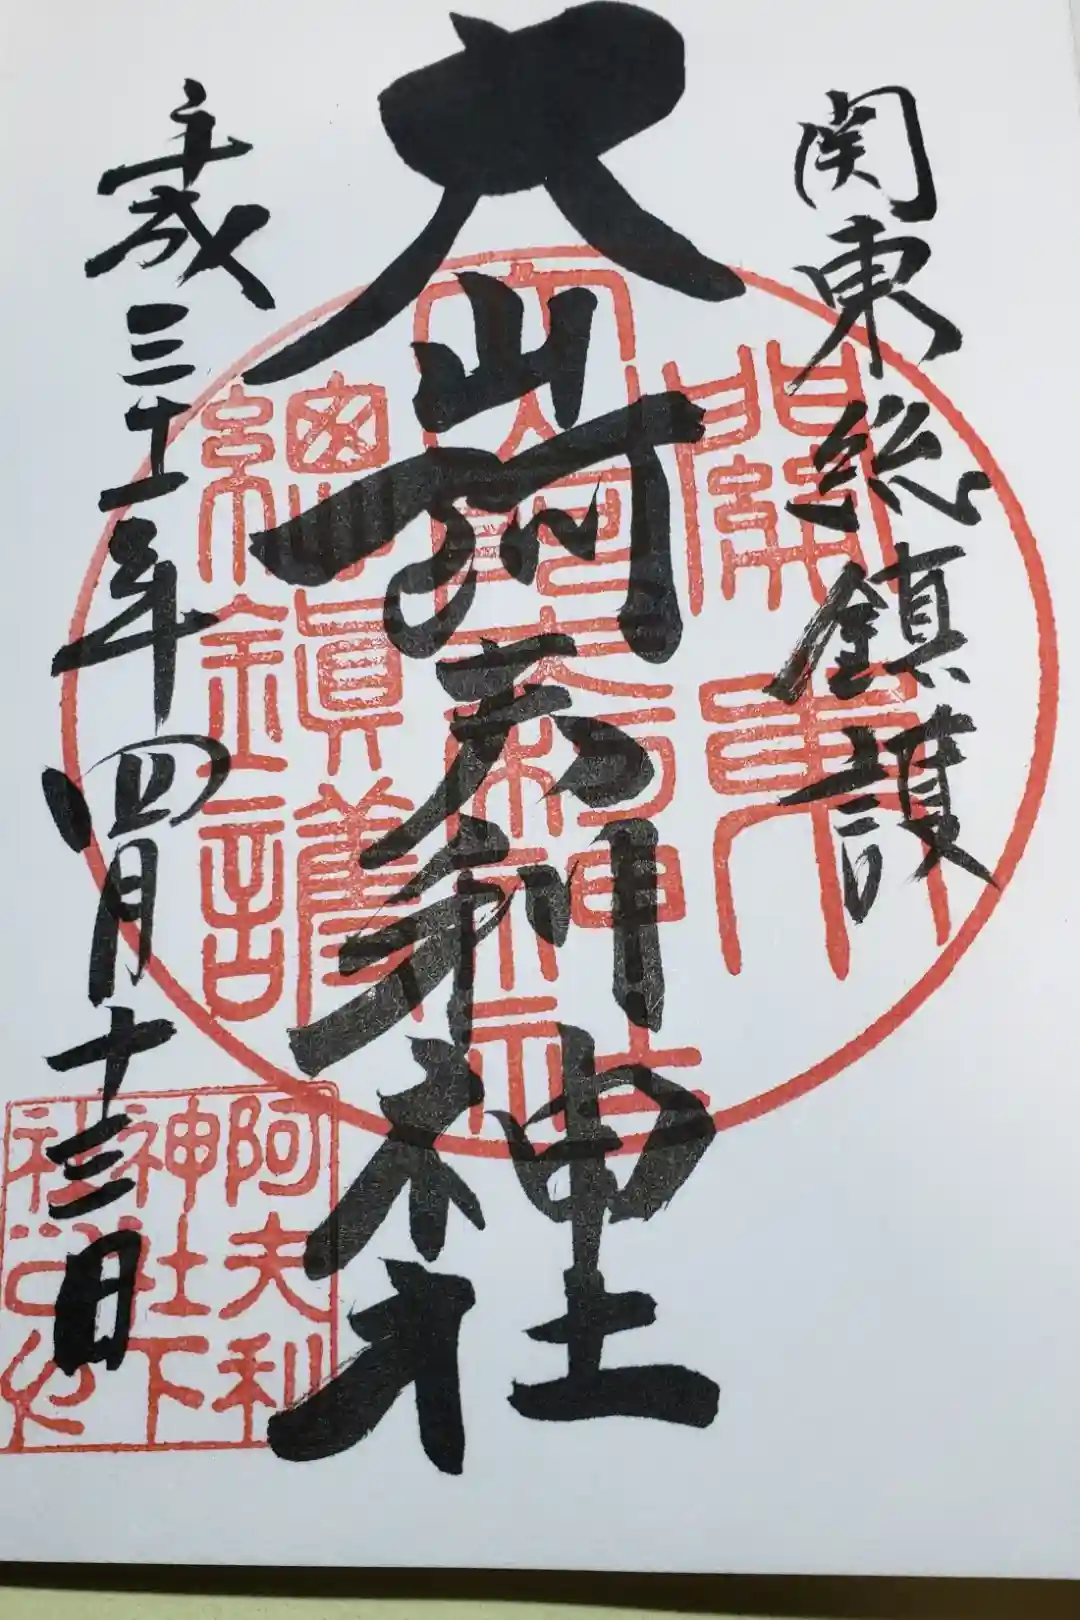 関東総鎮護
大山阿夫利神社
平成三十一年四月十三日
關東
總鎮護
阿夫利
神社下
社